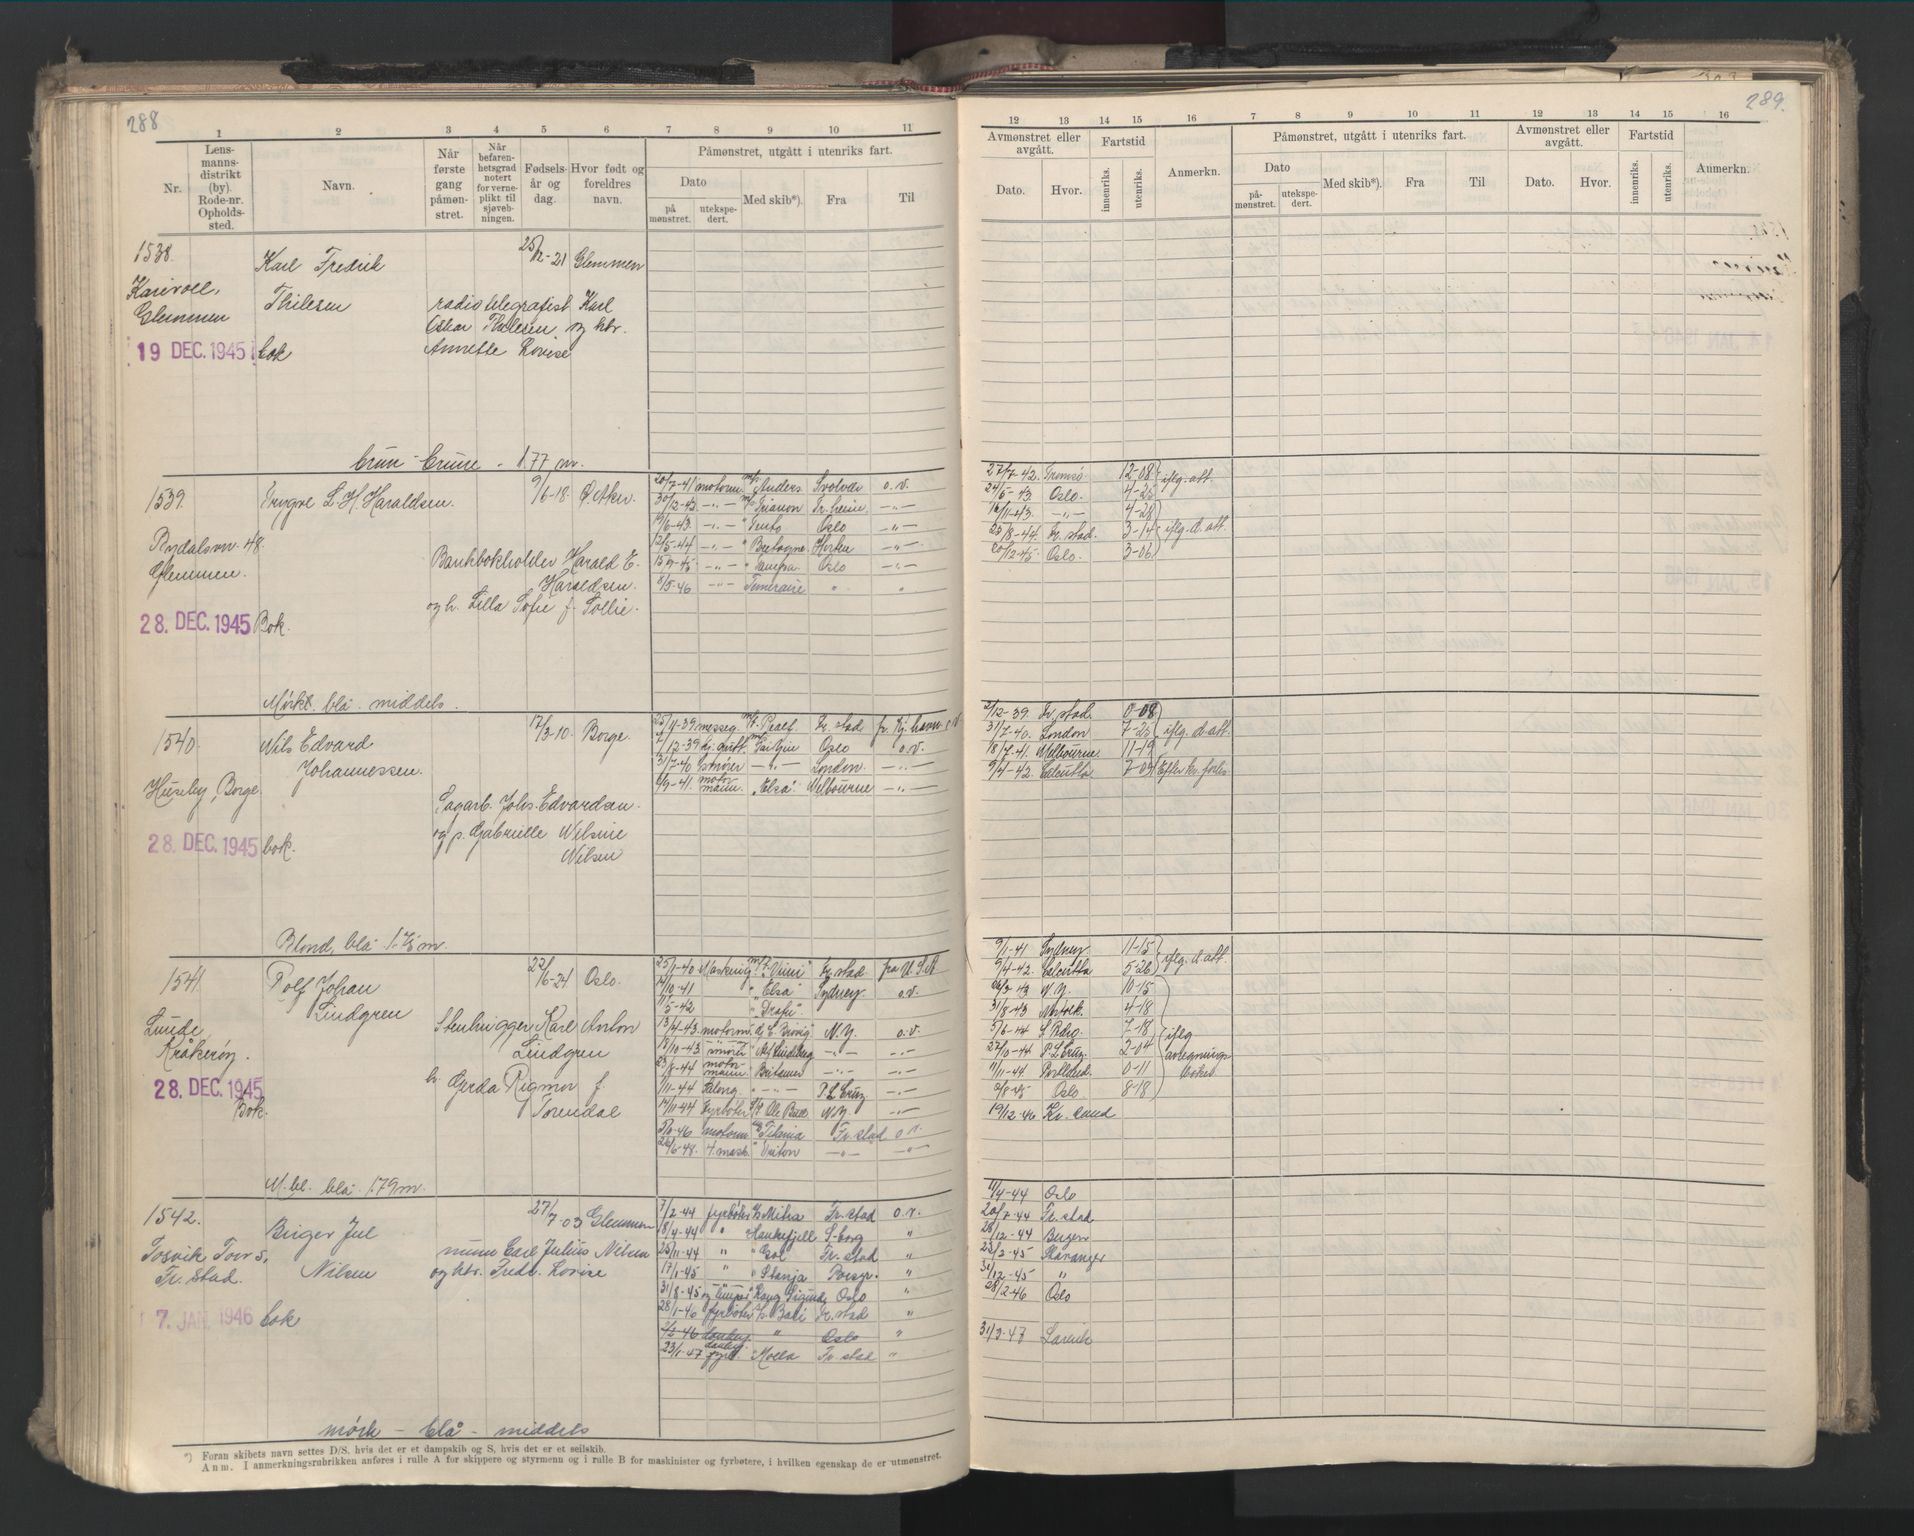 288
1 2 3 4 5 6 7 8 9 10 11
Nr.
Lens-
manns-
distrikt
(by).
Rode-nr.
Opholds-
sted.
Navn.
Når
første
gang
påmøn-
stret.
Når
befaren-
hetsgrad
notert
for verne-
plikt til
sjøveb-
ningen.
Fødsels-
år og
dag.
Hvor født og
foreldres
navn.
Påmønstret, utgått i utenriks fart.
Dato
på
mønstret.
utekspe-
dert.
Med skib*).
Fra
Til
1538.
Karl Fredrik 25/12-21 Glemmen
Glemmen Thilesen radiotelegrafist Karl
Oskar Thilesen og htr.
19 DEC. 1945 bok Annette Lovise
brun - brune - 1.77 m.
1539. Trygve L. H. Haraldsen. 9/6-18. Ø. Aker.
20/7-41 motorm. m/s Anders Svolvær o.v.
30/12-42 -"- Trianon -"-
19/6-43. -"- " Oslo -"-
12/5-44 -"- " Bretagne Horten -"-
-"- " Oslo -"-
8/5-46 -"- Temeraire " "
48.
Glemmen.
Bankbokholder Harald E.
Haraldsen.
og h. Lilla Sofie f. Tollie.
28. DEC. 1945 Bok.
Mørkt. blå. middels.
1540. Nils Edvard 17/3-10. Borge.
Johannessen.
Huseby, Borge
25/11-39 messeg. Fr. stad fr. Kj. havn o.v.
7/12-39 Oslo o.v.
31/7-40 smører -"- London. -"-
6/9-41. motor-
mann. "Elsa" Melbourne -"-
Sagarb. Johs. Edvardsen
og h. Gabrielle Nilsine
Nilsen
28. DEC. 1945 bok.
Blond, blå
1541. Rolf Johan 22/6-21 Oslo.
Lindgren
Lunde,
Kråkerøy.
Stenhugger Karl Anton
Lindgren
h. Gerda Rigmor f.
Torendal
28. DEC. 1945
Bok.
25/1-40 Fr. stad fra U.S.A.
14/10-41 " Elsa" Sydney. o.v.
11/5-42
13/4-43. motorm. N.Y. o.v.
19/10-43. smører -"- -"-
23/8-44 motor-
mann " Britamer -"- -"-
/11-44 -"- P. L. Cruz. -"-
17/11-44 Fyrbøter Ole Bull N.Y. -"-
3/9-46 motorm Titania Fr. stad o.v.
26/6-48. 4. mask. " Triton -"- -"-
M. bl. blå 1.79 m.
1542. 27/7-03 Glemmen
Birger Jul
Nilsen
Fr. stad.
murer Carl Julius Nilsen
og htr. Fredr. Lovise
7 JAN. 1946 bok
7/2-44 fyrbøter Mitra Fr. stad o.v.
18/4-44 " Haukefjell S-borg "
25/11-44 " " Gol Fr. stad "
17/1-45 " " Stanja Porsgr. "
31/8-45 Oslo "
28/1-46 fyrbøter Bali Fr. stad "
2/2-46 donkey " Oslo "
23/1-47 donkey
fyrb. " Molla Fr. stad "
mørk - blå - middels
*) Foran skibets navn settes D/S. hvis det er et dampskib og S, hvis det er et seilskib.
Anm. I anmerkningsrubrikken anføres i rulle A for skippere og styrmenn og i rulle B for maskinister og fyrbøtere, i hvilken egenskap de er utmønstret.
289.
12 13 14 15 16 7 8 9 10 11 12 13 14 15 16
Avmønstret eller
avgått.
Dato.
Hvor.
Fartstid
innenriks.
utenriks.
Anmerkn.
Påmønstret, utgått i utenriks fart.
Dato
på-
mønstret.
utekspe-
dert.
Med skib*).
Fra
Til
Avmønstret eller
avgått.
Dato.
Hvor.
Fartstid
innenriks.
utenriks.
Anmerkn.
27/7-42. Tromsø 12-08
24/5-43. Oslo. 4-25 iflg. att.
16/11-43. -"- 4-28
25/8-44. Fr. stad. 3-14 iflg. d. att.
20/12-45 Oslo. 3-06
2/12-39. Fr. stad. 0-08
31/7-40. London 7-25 iflg. d. att.
18/7-41. Melbourne. 11-19
9/4-42. Calcutta 7-04 Efter kr. forlis
9/1-41. Sydney. 11-15 iflg. d. att.
9/4-42. Calcutta 5-26
26/3 43 N.Y. 10-15
31/8-43 4-18
5/6-44 7-18 iflg
22/10-44 P. L. Cruz. 2-04 avregnings-
11/11-44 Portland. 0-11 bøker
Oslo 8-18
19/12-46 Kr. sand
11/4-44 Oslo
20/7-44 Fr. stad
28/12-44 Bergen
23/2-45 Stavanger
31/12-45 "
28/2-46 Oslo
31/3-47 Larvik